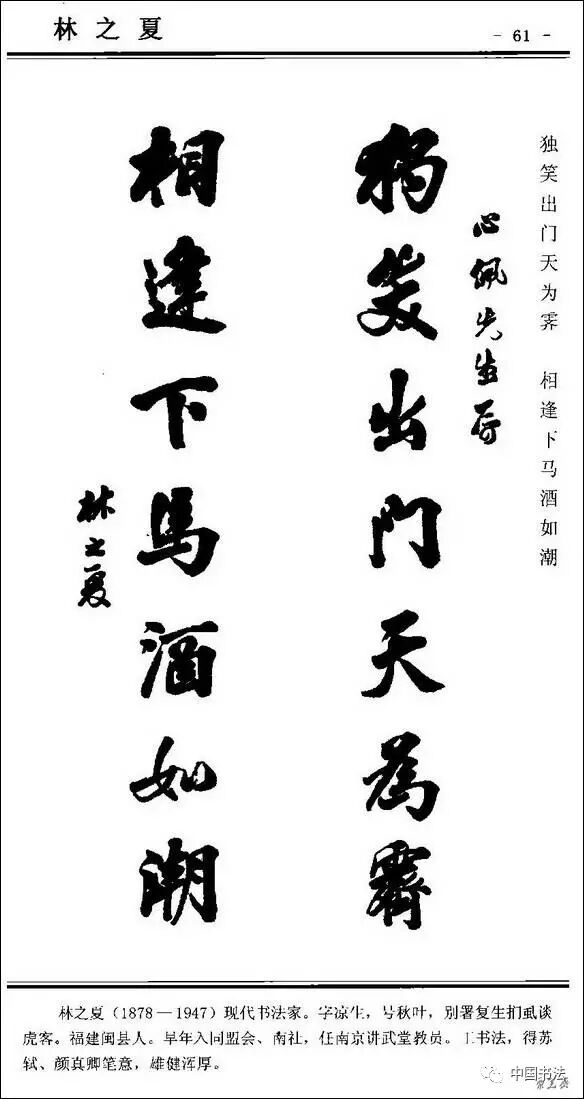 林之夏
- 61 -
独笑出门天为霁 相逢下马酒如潮
心佩先生属
獨笑出門天為霽
相逢下馬酒如潮
林之夏
林之夏(1878—1947)现代书法家。字凉生,号秋叶,别署复生扪虱谈
虎客。福建闽县人。早年入同盟会、南社,任南京讲武堂教员。工书法,得苏
轼、颜真卿笔意,雄健浑厚。
中国书法